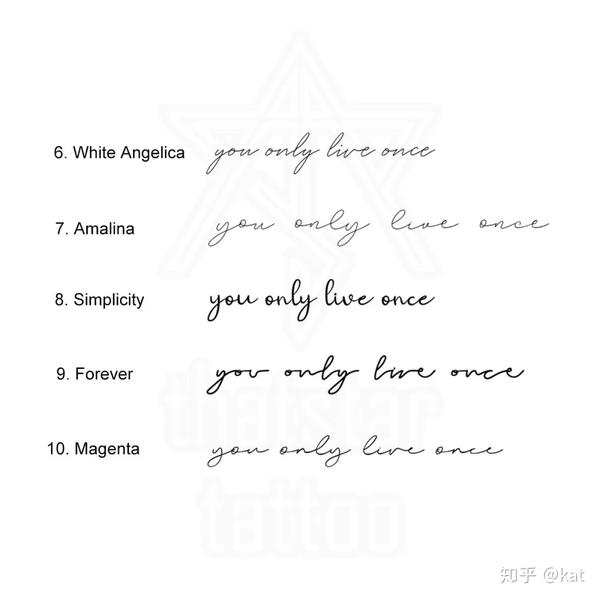 6. White Angelica you only live once
7. Amalina you only live once
8. Simplicity you only live once
9. Forever you only live once
10. Magenta you only live once
thatstar
tattoo
知乎 @kat